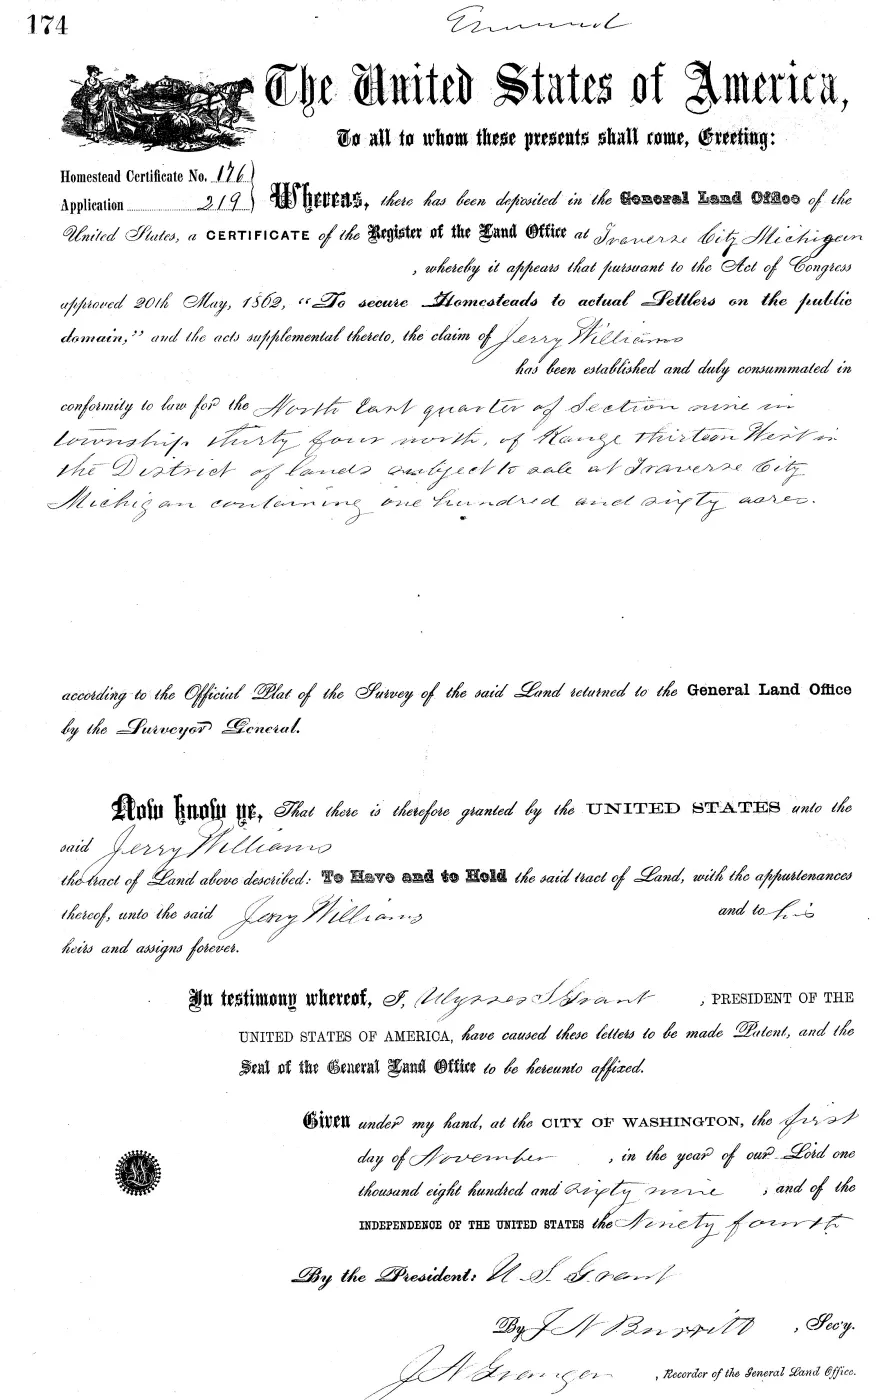 174
The United States of America,
To all to whom these presents shall come, Greeting:
Homestead Certificate No. 176
Application 219
Whereas, there has been deposited in the General Land Office of the
United States, a CERTIFICATE of the Register of the Land Office at Traverse City Michigan
, whereby it appears that pursuant to the Act of Congress
approved 20th May, 1862, "To secure Homesteads to actual Settlers on the public
domain," and the acts supplemental thereto, the claim of Jerry Williams
has been established and duly consummated in
conformity to law for the North East quarter of Section nine in
township thirty four north, of Range thirteen West in
the District of lands subject to sale at Traverse City
Michigan containing one hundred and sixty acres.
according to the Official Plat of the Survey of the said Land returned to the General Land Office
by the Surveyor General.
Now know ye, That there is therefore granted by the UNITED STATES unto the
said Jerry Williams
the tract of Land above described: To Have and to Hold the said tract of Land, with the appurtenances
thereof, unto the said Jerry Williams and to his
heirs and assigns forever.
In testimony whereof, I, Ulysses S Grant , PRESIDENT OF THE
UNITED STATES OF AMERICA, have caused these letters to be made Patent, and the
Seal of the General Land Office to be hereunto affixed.
Given under my hand, at the CITY OF WASHINGTON, the first
day of November , in the year of our Lord one
thousand eight hundred and sixty nine , and of the
INDEPENDENCE OF THE UNITED STATES the Ninety fourth
By the President: U. S. Grant
By J N Burritt , Sec'y.
J N Granger , Recorder of the General Land Office.